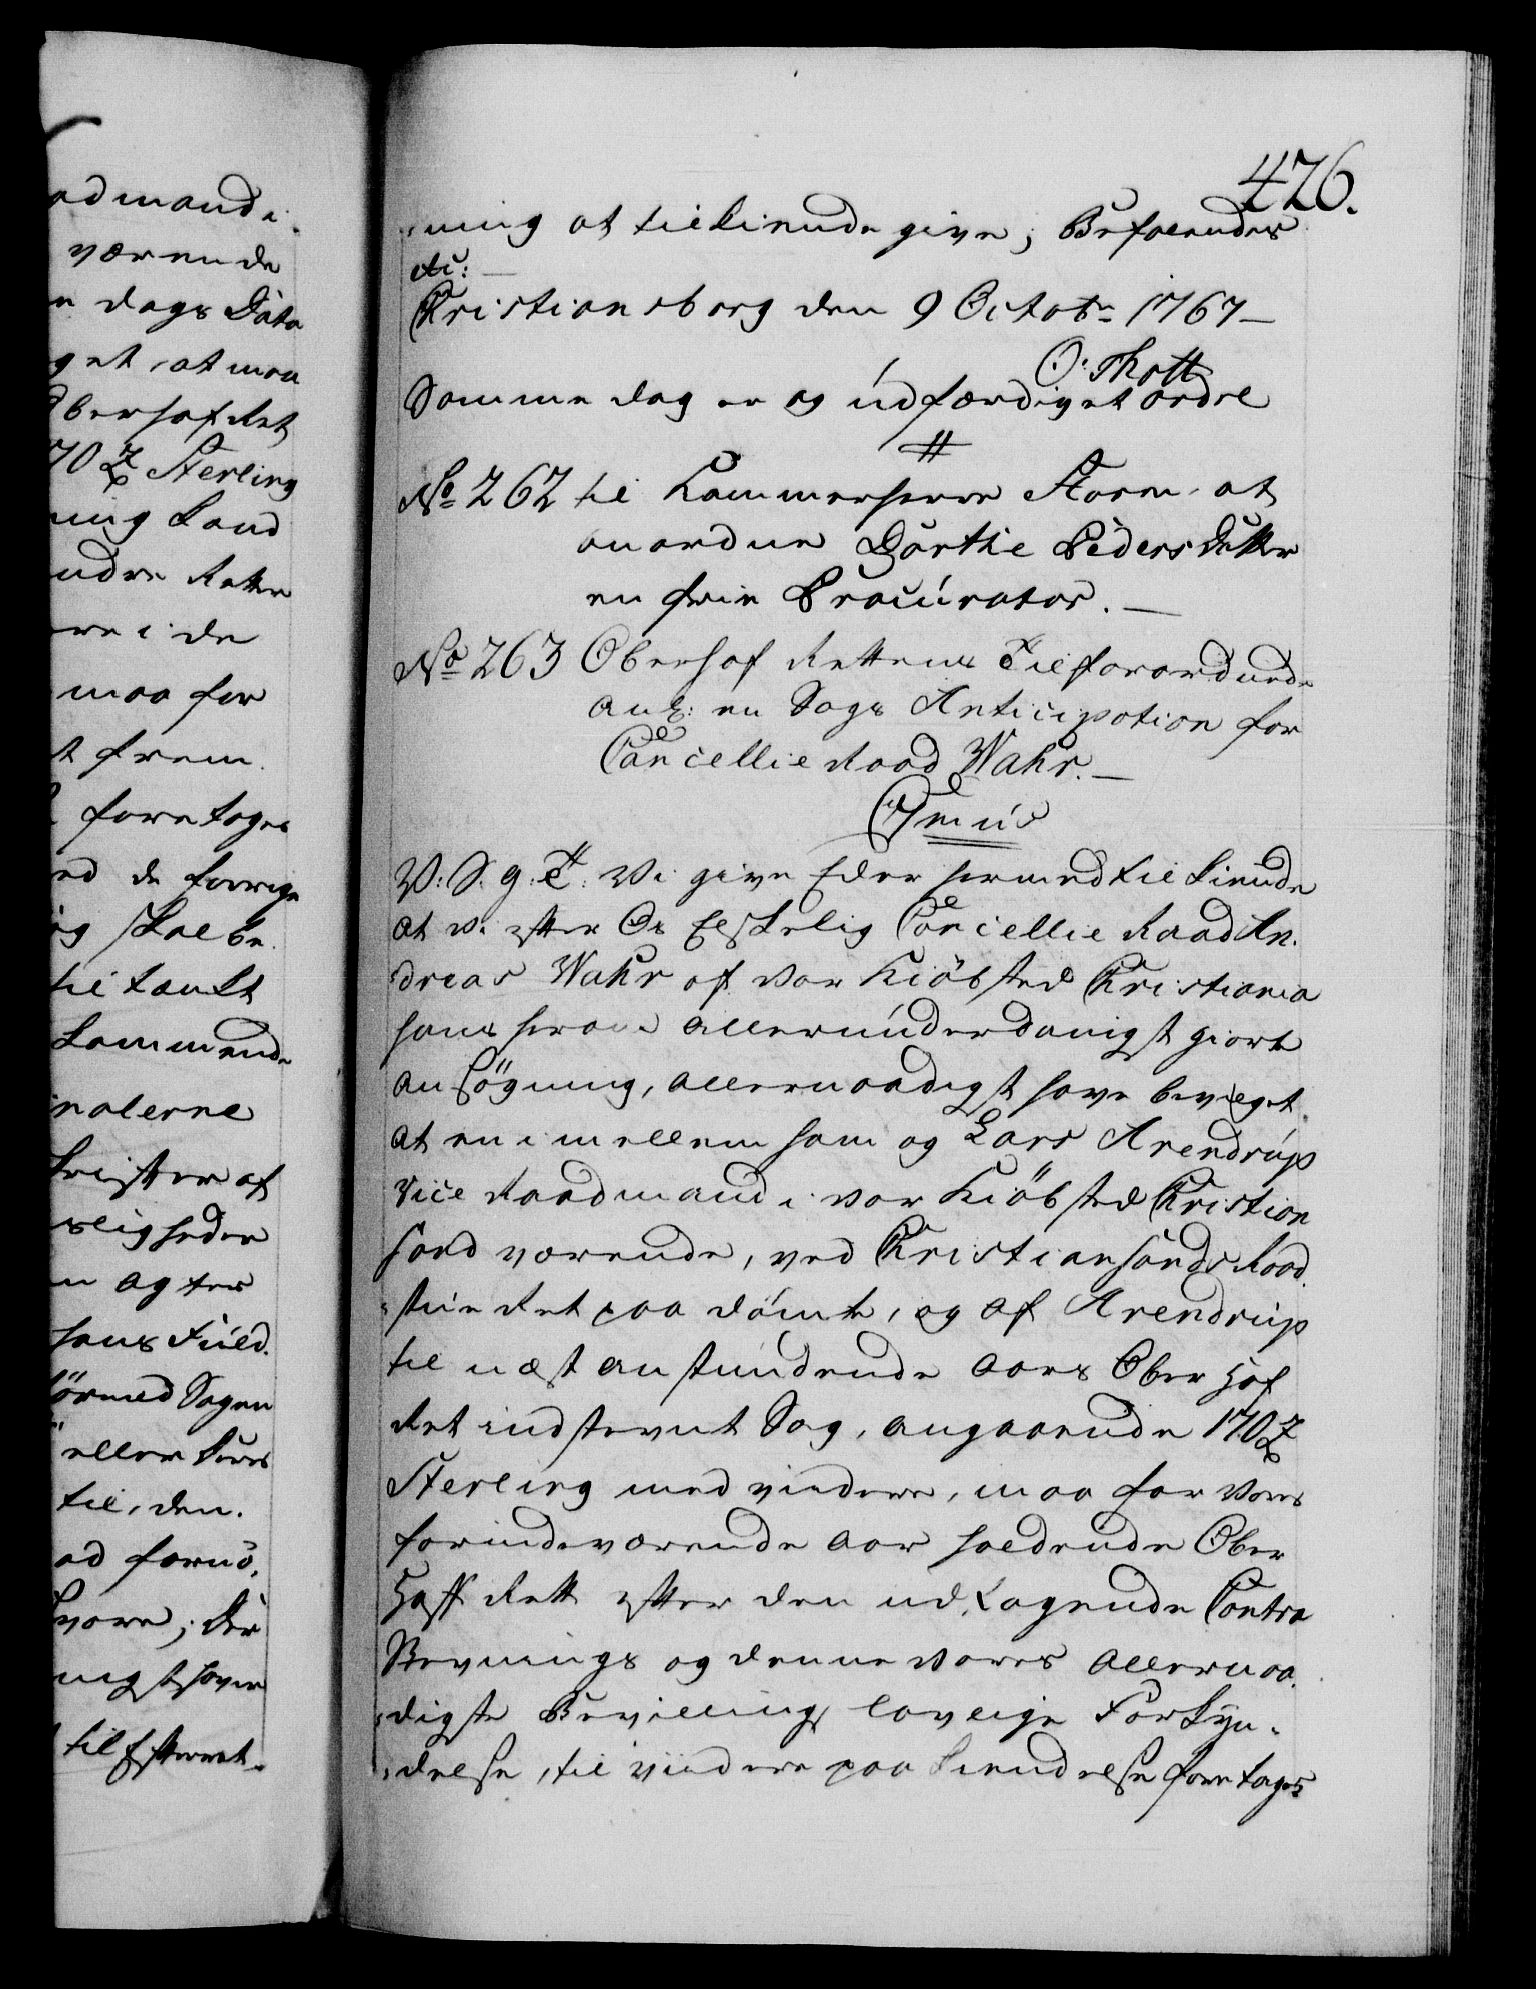 admand i
værende
n dags Dato
get, at maa
Oberhof Ret
70 £ Sterling
ning Land
ndre Rette
ere i de
maa for
t frem
foretages
ed de forrige
og skal be
til tænkt
kommende
inalerne
krifter af
eligheder
n agter
hans Fuld
førmed Sagen
eller kun
til, den
ad fornø,
kvare; der
nigst haver
til Efterret,
476.
,ning at tilkiende give; Befalendes
etc:
Christiansborg den 9 Octobr 1767—
O: Thott
Samme dag er og udfærdiget ordre
No 262 til Kammerherre Storm, at
anordne Dorthe Peders Datter
en frie Procurator. —
No 263 Oberhof Rettens Tilforordnede
ang: en Sags Anticipation for
Cancellie Raad Wahr. —
V: S. g: T: Vi give Eder hermed tilkiende
at vi efter Os Elskelig Cancellie Raad An-
dreas Wahr af vor Kiöbsted Christiania
hans herom allerunderdanigst giort
ansögning, allernaadigst have bevilget
at en imellem ham og Lars Arendrup
Vice Raadmand i vor Kiöbsted Christian
sand værende, ved Christiansands Raad
stue Ret paa dömte, og af Arendrup
til næst anstundende Aars Ober Hof
Ret indstevnt Sag, angaaende 170 £
Sterling med videre, maa for vores
forindeværende Aar holdende Ober
Hoff Rett efter den udtagende Contra
Stevnings og denne vores allernaa-
digste Bevillings lovlige Forkyn-
delse, til videre paa kiendelse foretages